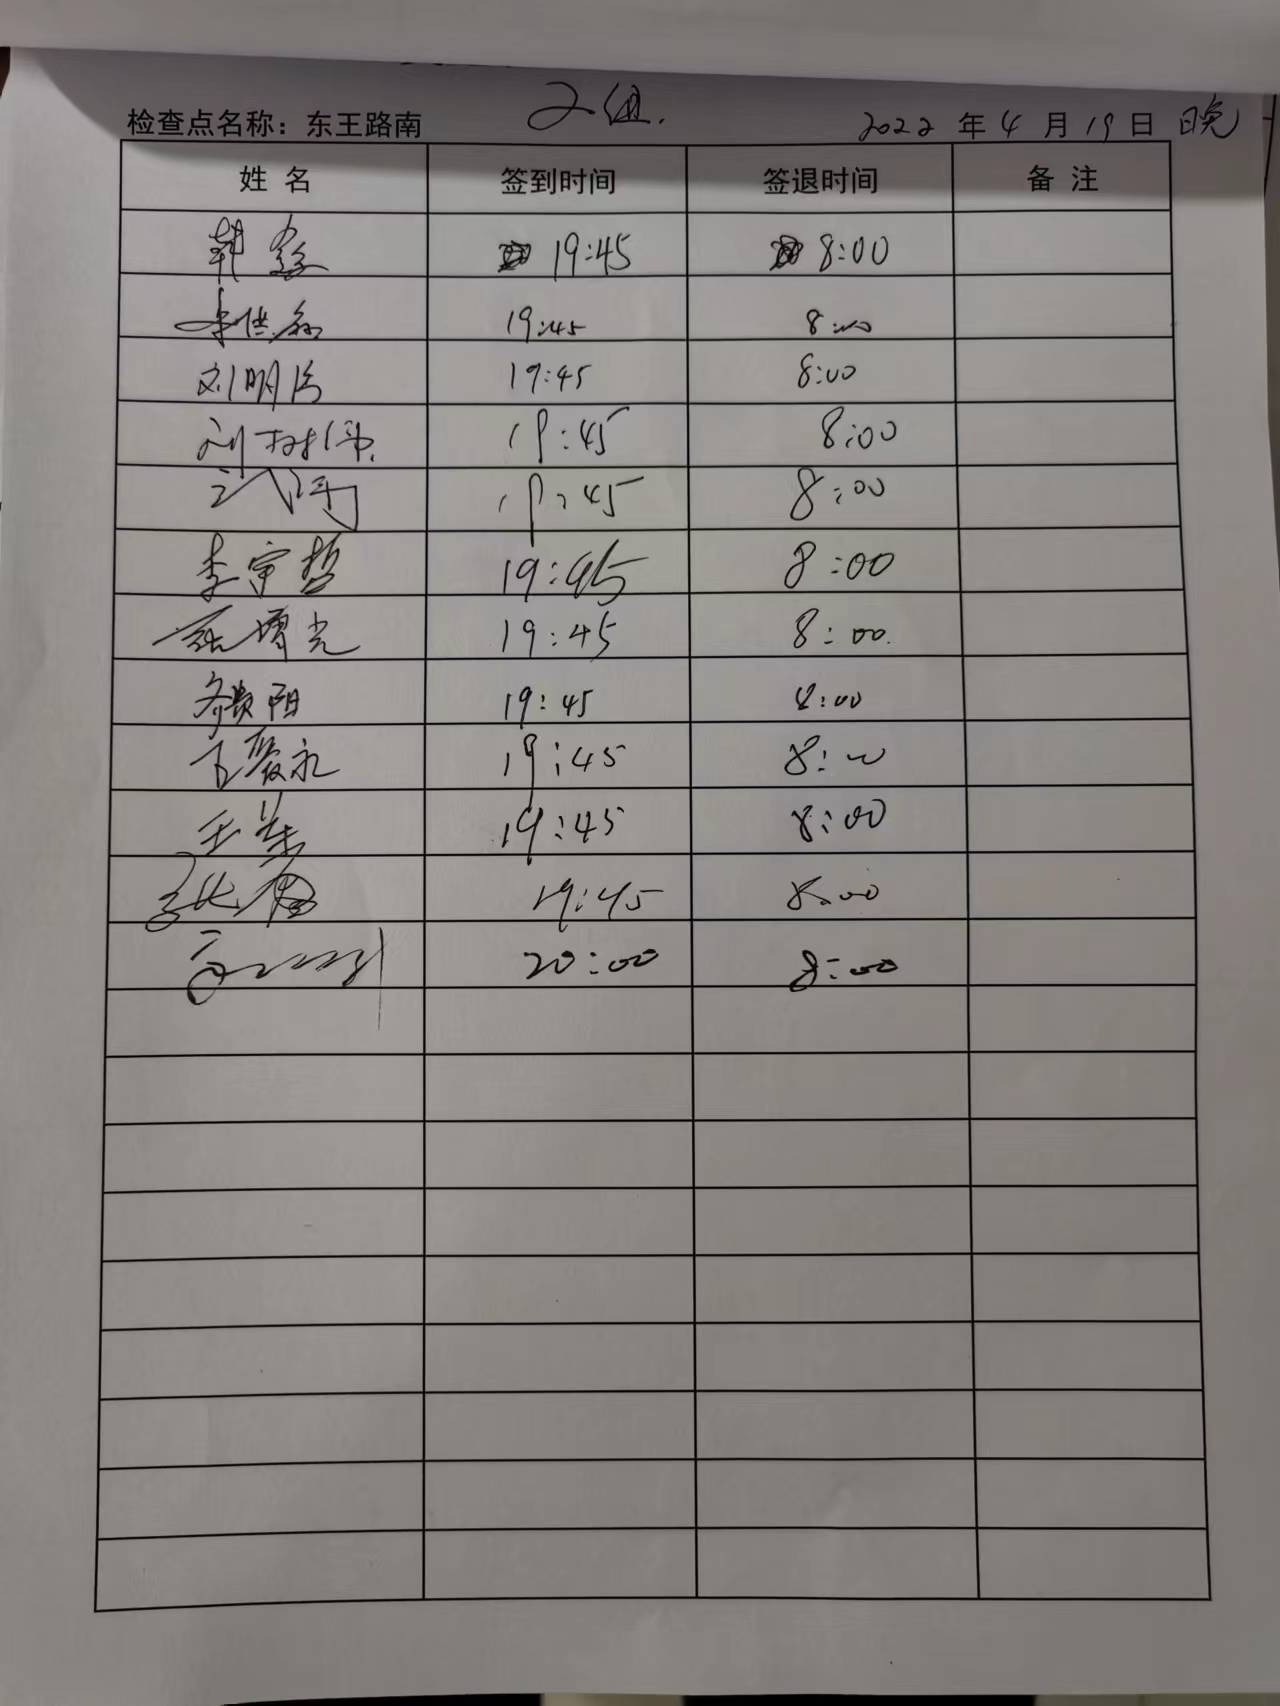 2组.
检查点名称：东王路南 2022 年 4 月 19 日 晚
姓 名 签到时间 签退时间 备 注
韩鑫 19:45 8:00
19:45 8:00
刘明 19:45 8:00
刘树伟 19:45 8:00
武 19:45 8:00
李宇哲 19:45 8:00
光 19:45 8:00
阳 19:45 8:00
永 19:45 8:00
王 19:45 8:00
张 19:45 8:00
20:00 8:00